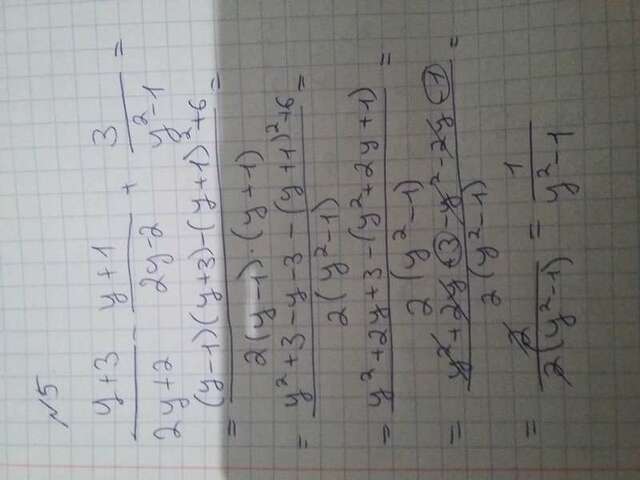 №5
(y+3)/(2y+2) - (y+1)/(2y-2) + 3/(y²-1) =
= ((y-1)(y+3)-(y+1)²+6)/(2(y-1)·(y+1)) =
= (y²+3-y-3-(y+1)²+6)/(2(y²-1)) =
= (y²+2y+3-(y²+2y+1))/(2(y²-1)) =
= (y²+2y+3-y²-2y-1)/(2(y²-1)) =
= 2/(2(y²-1)) = 1/(y²-1)